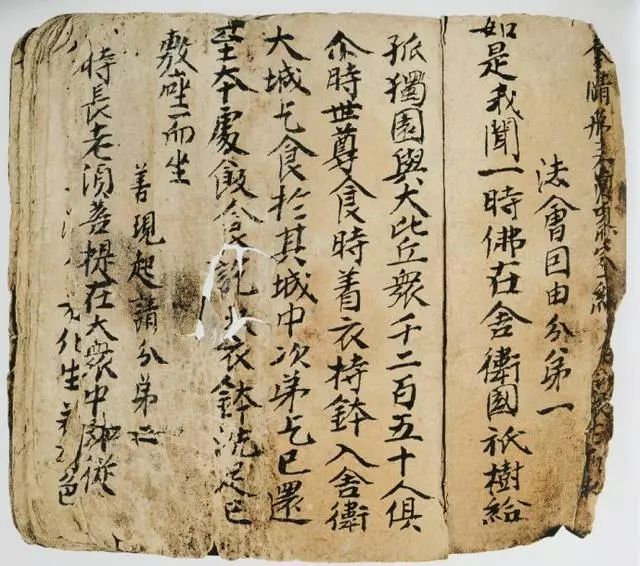 奉請
法會囙由分第一
如是我聞一時佛在舍衛國祇樹給
孤獨園與大比丘衆千二百五十人俱
尒時世尊食時着衣持鉢入舍衛
大城乞食於其城中次第乞已還
至本處飯食訖衣鉢洗足已
敷座而坐
善現起請分第二
時長老須菩提在大衆中即從
化生若色